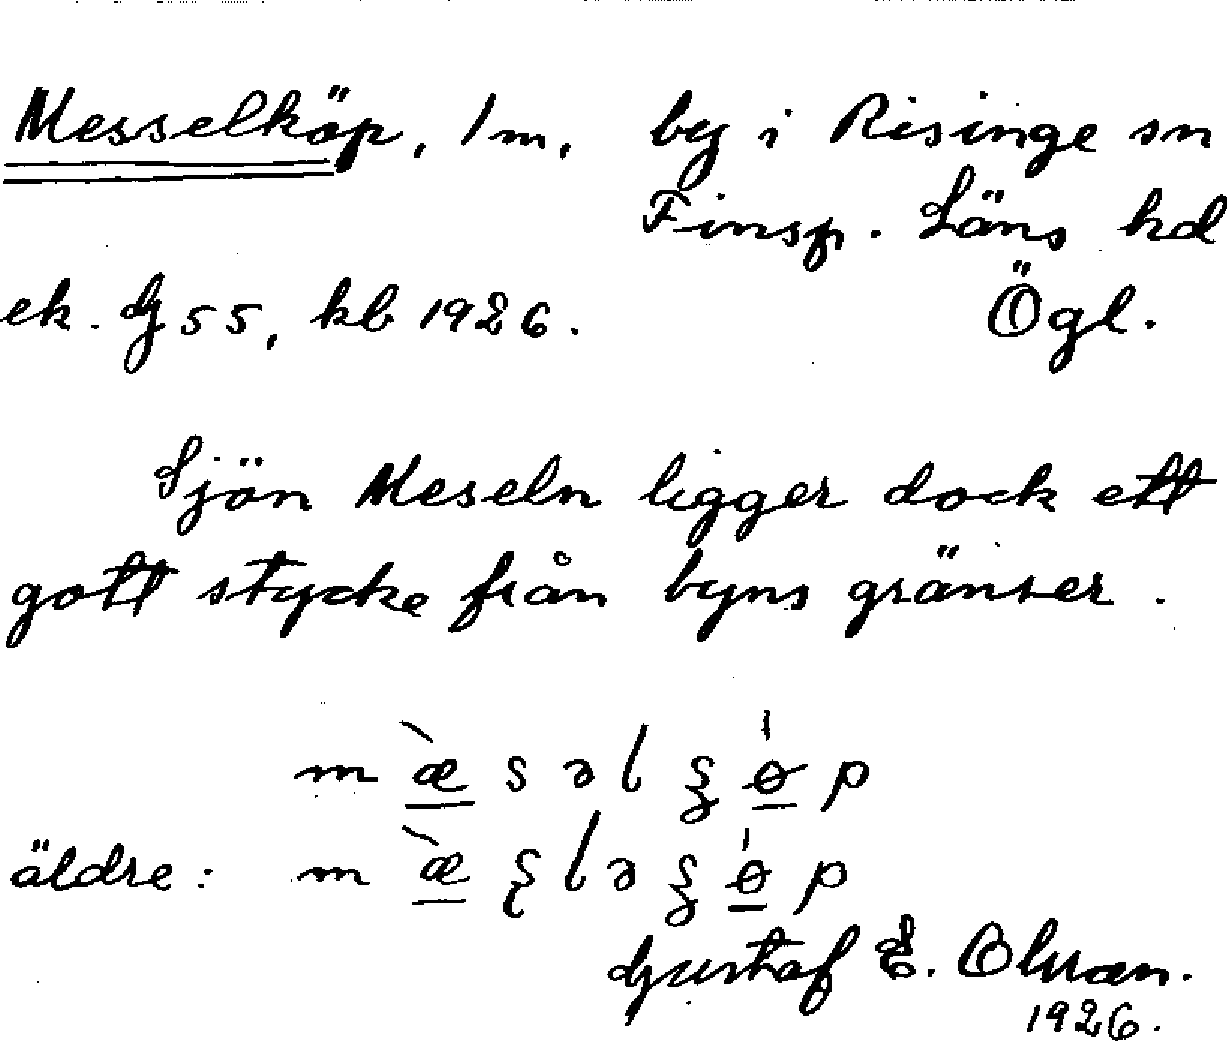 Messelköp, 1 m, by i Risinge sn
Finsp. Läns hd
ek. G 55, kb 1926. Ögl.
Sjön Meseln ligger dock ett
gott stycke från byns gränser.
äldre:
Gustaf E. Olsson.
1926.